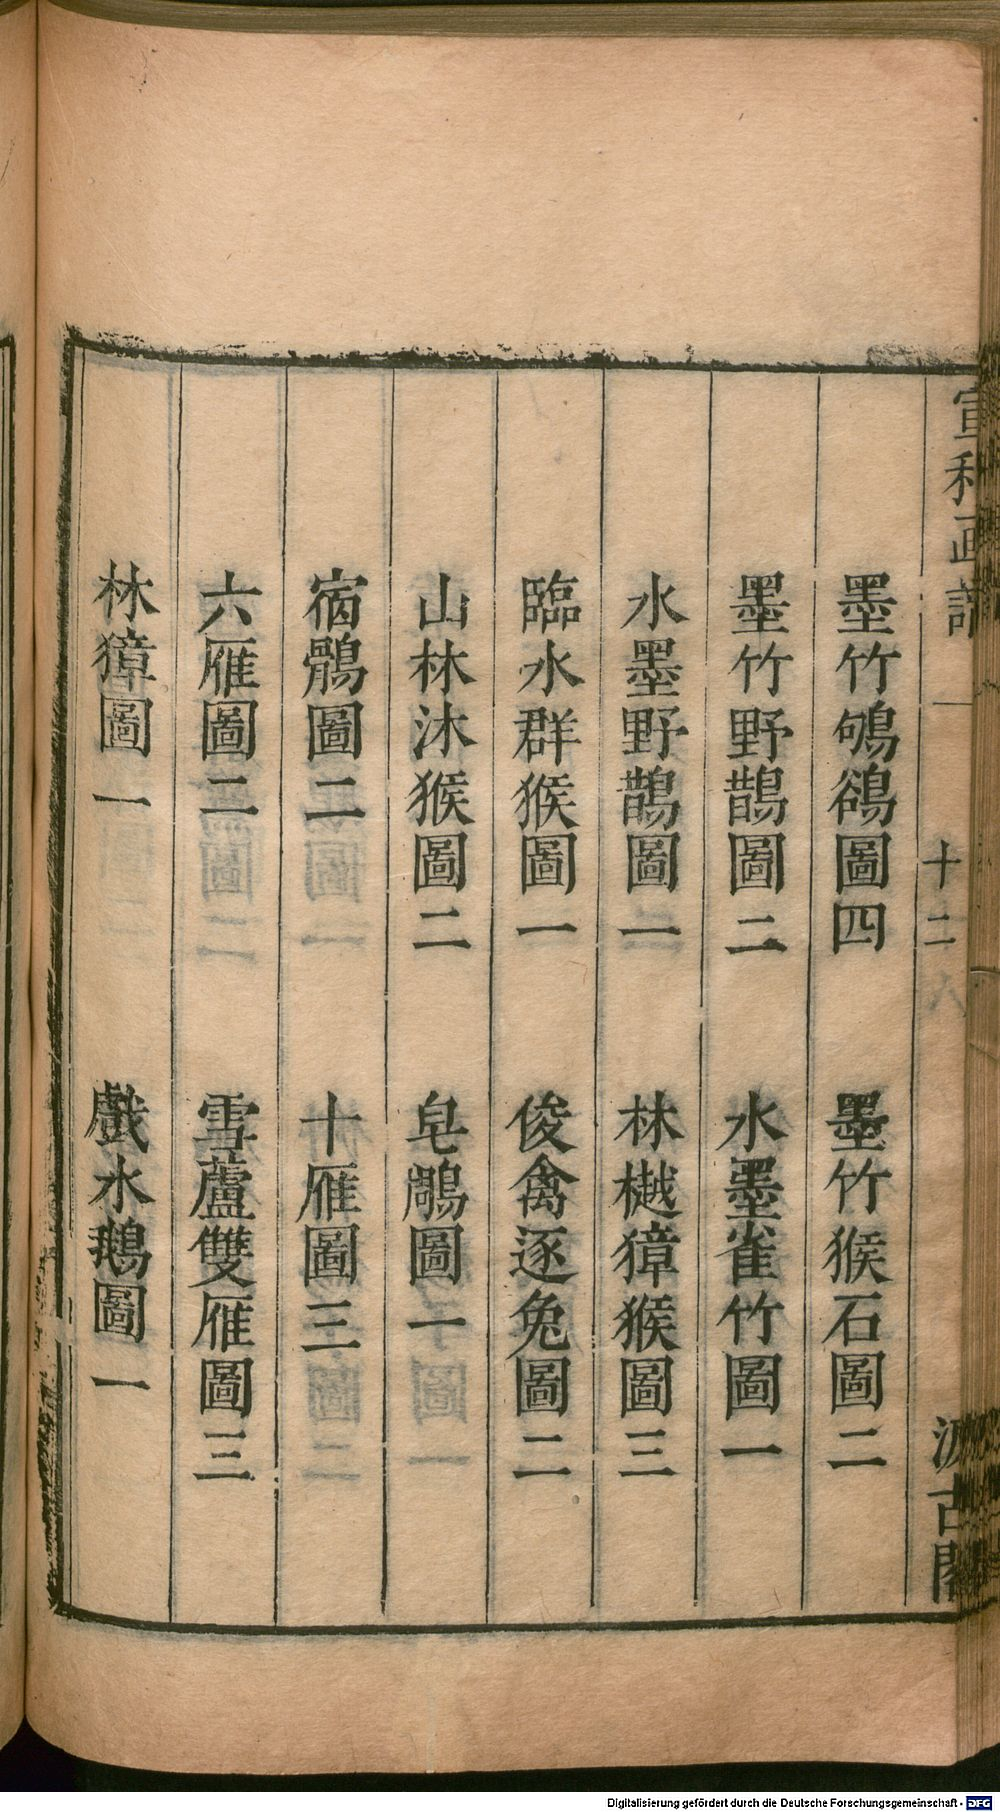 宣和画譜 十二 汲古閣
墨竹鳩鵒圖四 墨竹猴石圖二
墨竹野鵲圖二 水墨雀竹圖一
水墨野鵲圖一 林樾獐猴圖三
臨水群猴圖一 俊禽逐兔圖二
山林沐猴圖二 皂鵰圖一
宿鶻圖二 十雁圖三
六雁圖二 雪蘆雙雁圖三
林獐圖一 戲水鵝圖一
Digitalisierung gefördert durch die Deutsche Forschungsgemeinschaft - DFG